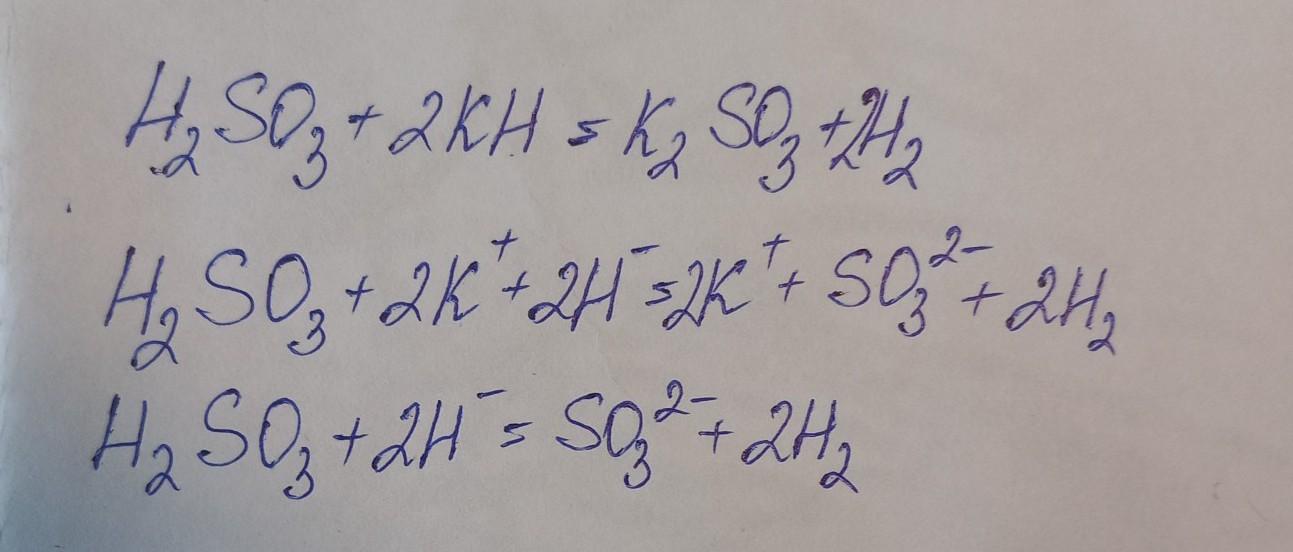 H₂SO₃ + 2KH = K₂SO₃ + 2H₂
H₂SO₃ + 2K⁺ + 2H⁻ = 2K⁺ + SO₃²⁻ + 2H₂
H₂SO₃ + 2H⁻ = SO₃²⁻ + 2H₂